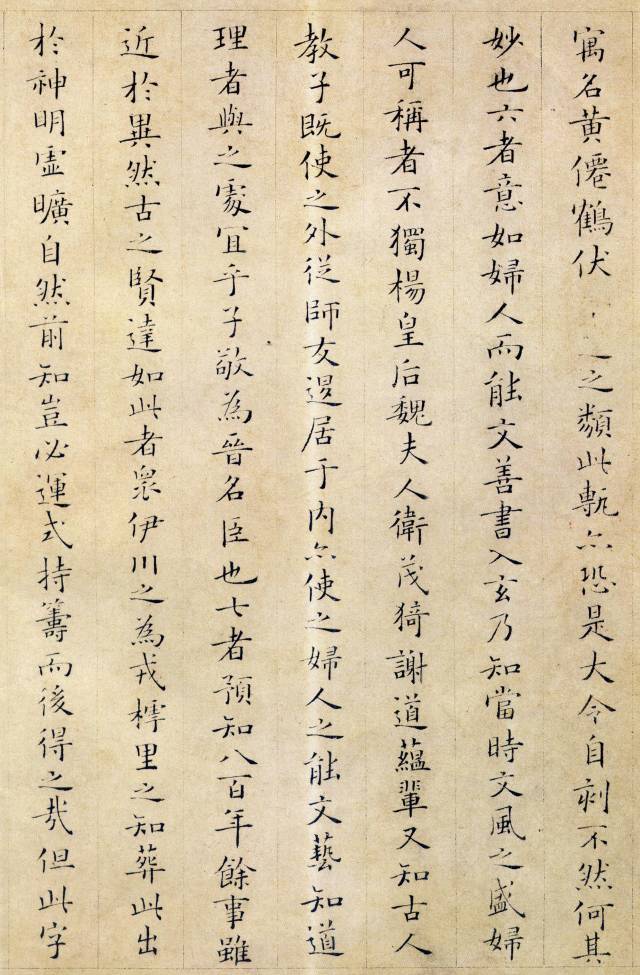 寓名黄僊鶴伏之類此甎亦恐是大令自刻不然何其
妙也六者意如婦人而能文善書入玄乃知當時文風之盛婦
人可稱者不獨楊皇后魏夫人衛茂猗謝道蘊輩又知古人
教子既使之外從師友退居于内亦使之婦人之能文藝知道
理者與之處宜乎子敬為晉名臣也七者預知八百年餘事雖
近於異然古之賢達如此者眾伊川之為戎樗里之知葬此出
於神明虛曠自然前知豈必運式持籌而後得之哉但此字